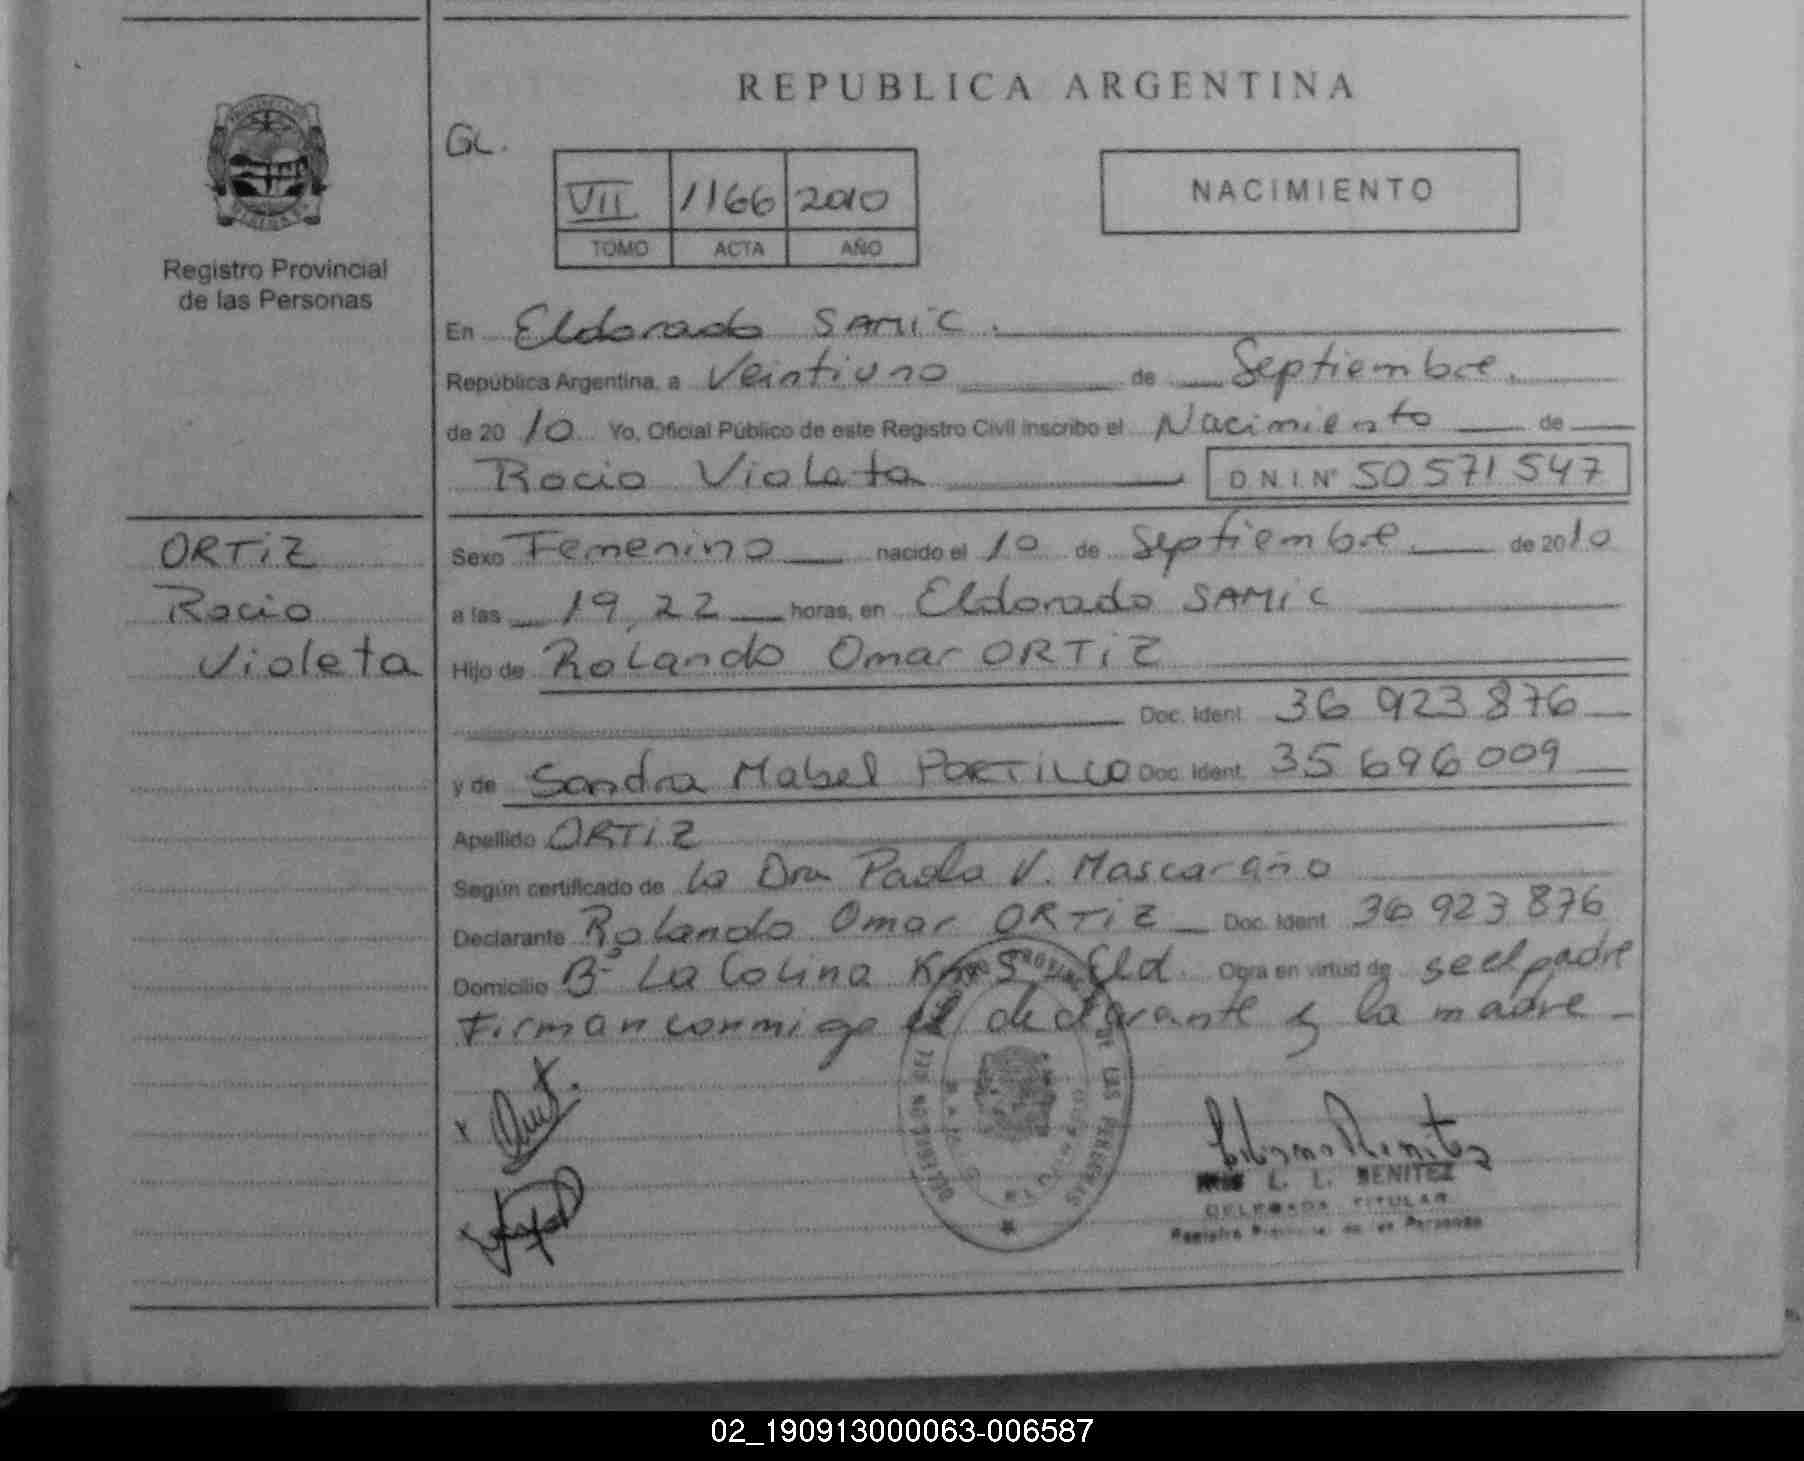 REPUBLICA ARGENTINA
GL.
VII 1166 2010
TOMO ACTA AÑO
NACIMIENTO
Registro Provincial
de las Personas
En Eldorado SAMIC.
República Argentina, a Veintiuno de Septiembre.
de 2010 Yo, Oficial Público de este Registro Civil inscribo el Nacimiento de
Rocio Violeta D.N.I Nº 50 571 547
ORTIZ
Rocio
Violeta
Sexo Femenino nacido el 10 de Septiembre de 2010
a las 19,22 horas, en Eldorado SAMIC
Hijo de Rolando Omar ORTIZ
Doc. Ident. 36 923 876
y de Sandra Mabel PORTILLO Doc. Ident. 35 696 009
Apellido ORTIZ
Según certificado de La Dra Paola V. Mascaraño
Declarante Rolando Omar ORTIZ Doc. Ident. 36 923 876
Domicilio Bº La Colina Km 5 Eld. Obra en virtud de se el padre
Firman conmigo el declarante y la madre
L. L. BENITEZ
DELEGADA TITULAR
Registro Provincial de las Personas
02_190913000063-006587